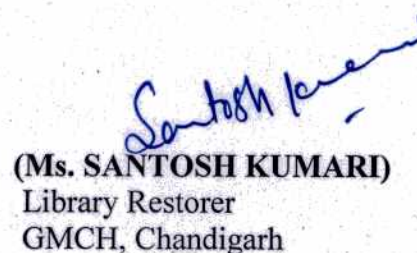 Santosh Kumari
(Ms. SANTOSH KUMARI)
Library Restorer
GMCH, Chandigarh